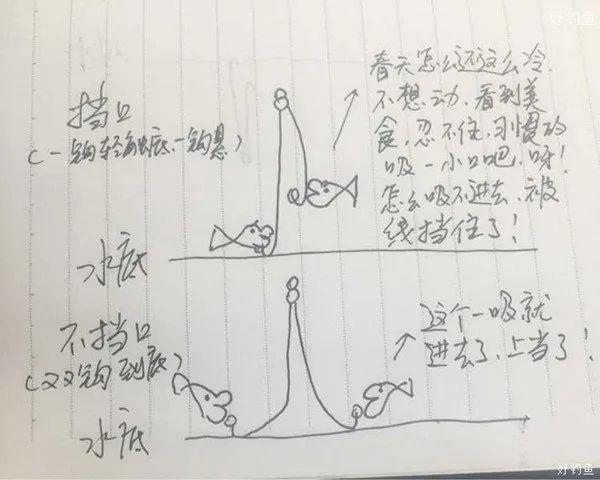 好钓鱼
挡口
(一钩轻触底、一钩悬)
春天怎么还这么冷、
不想动、看到美
食、忍不住、习惯的
吸一小口吧、呀!
怎么吸不进去、被
线挡住了!
水底
不挡口
(双钩到底)
这个一吸就
进去了、上当了!
水底
好钓鱼